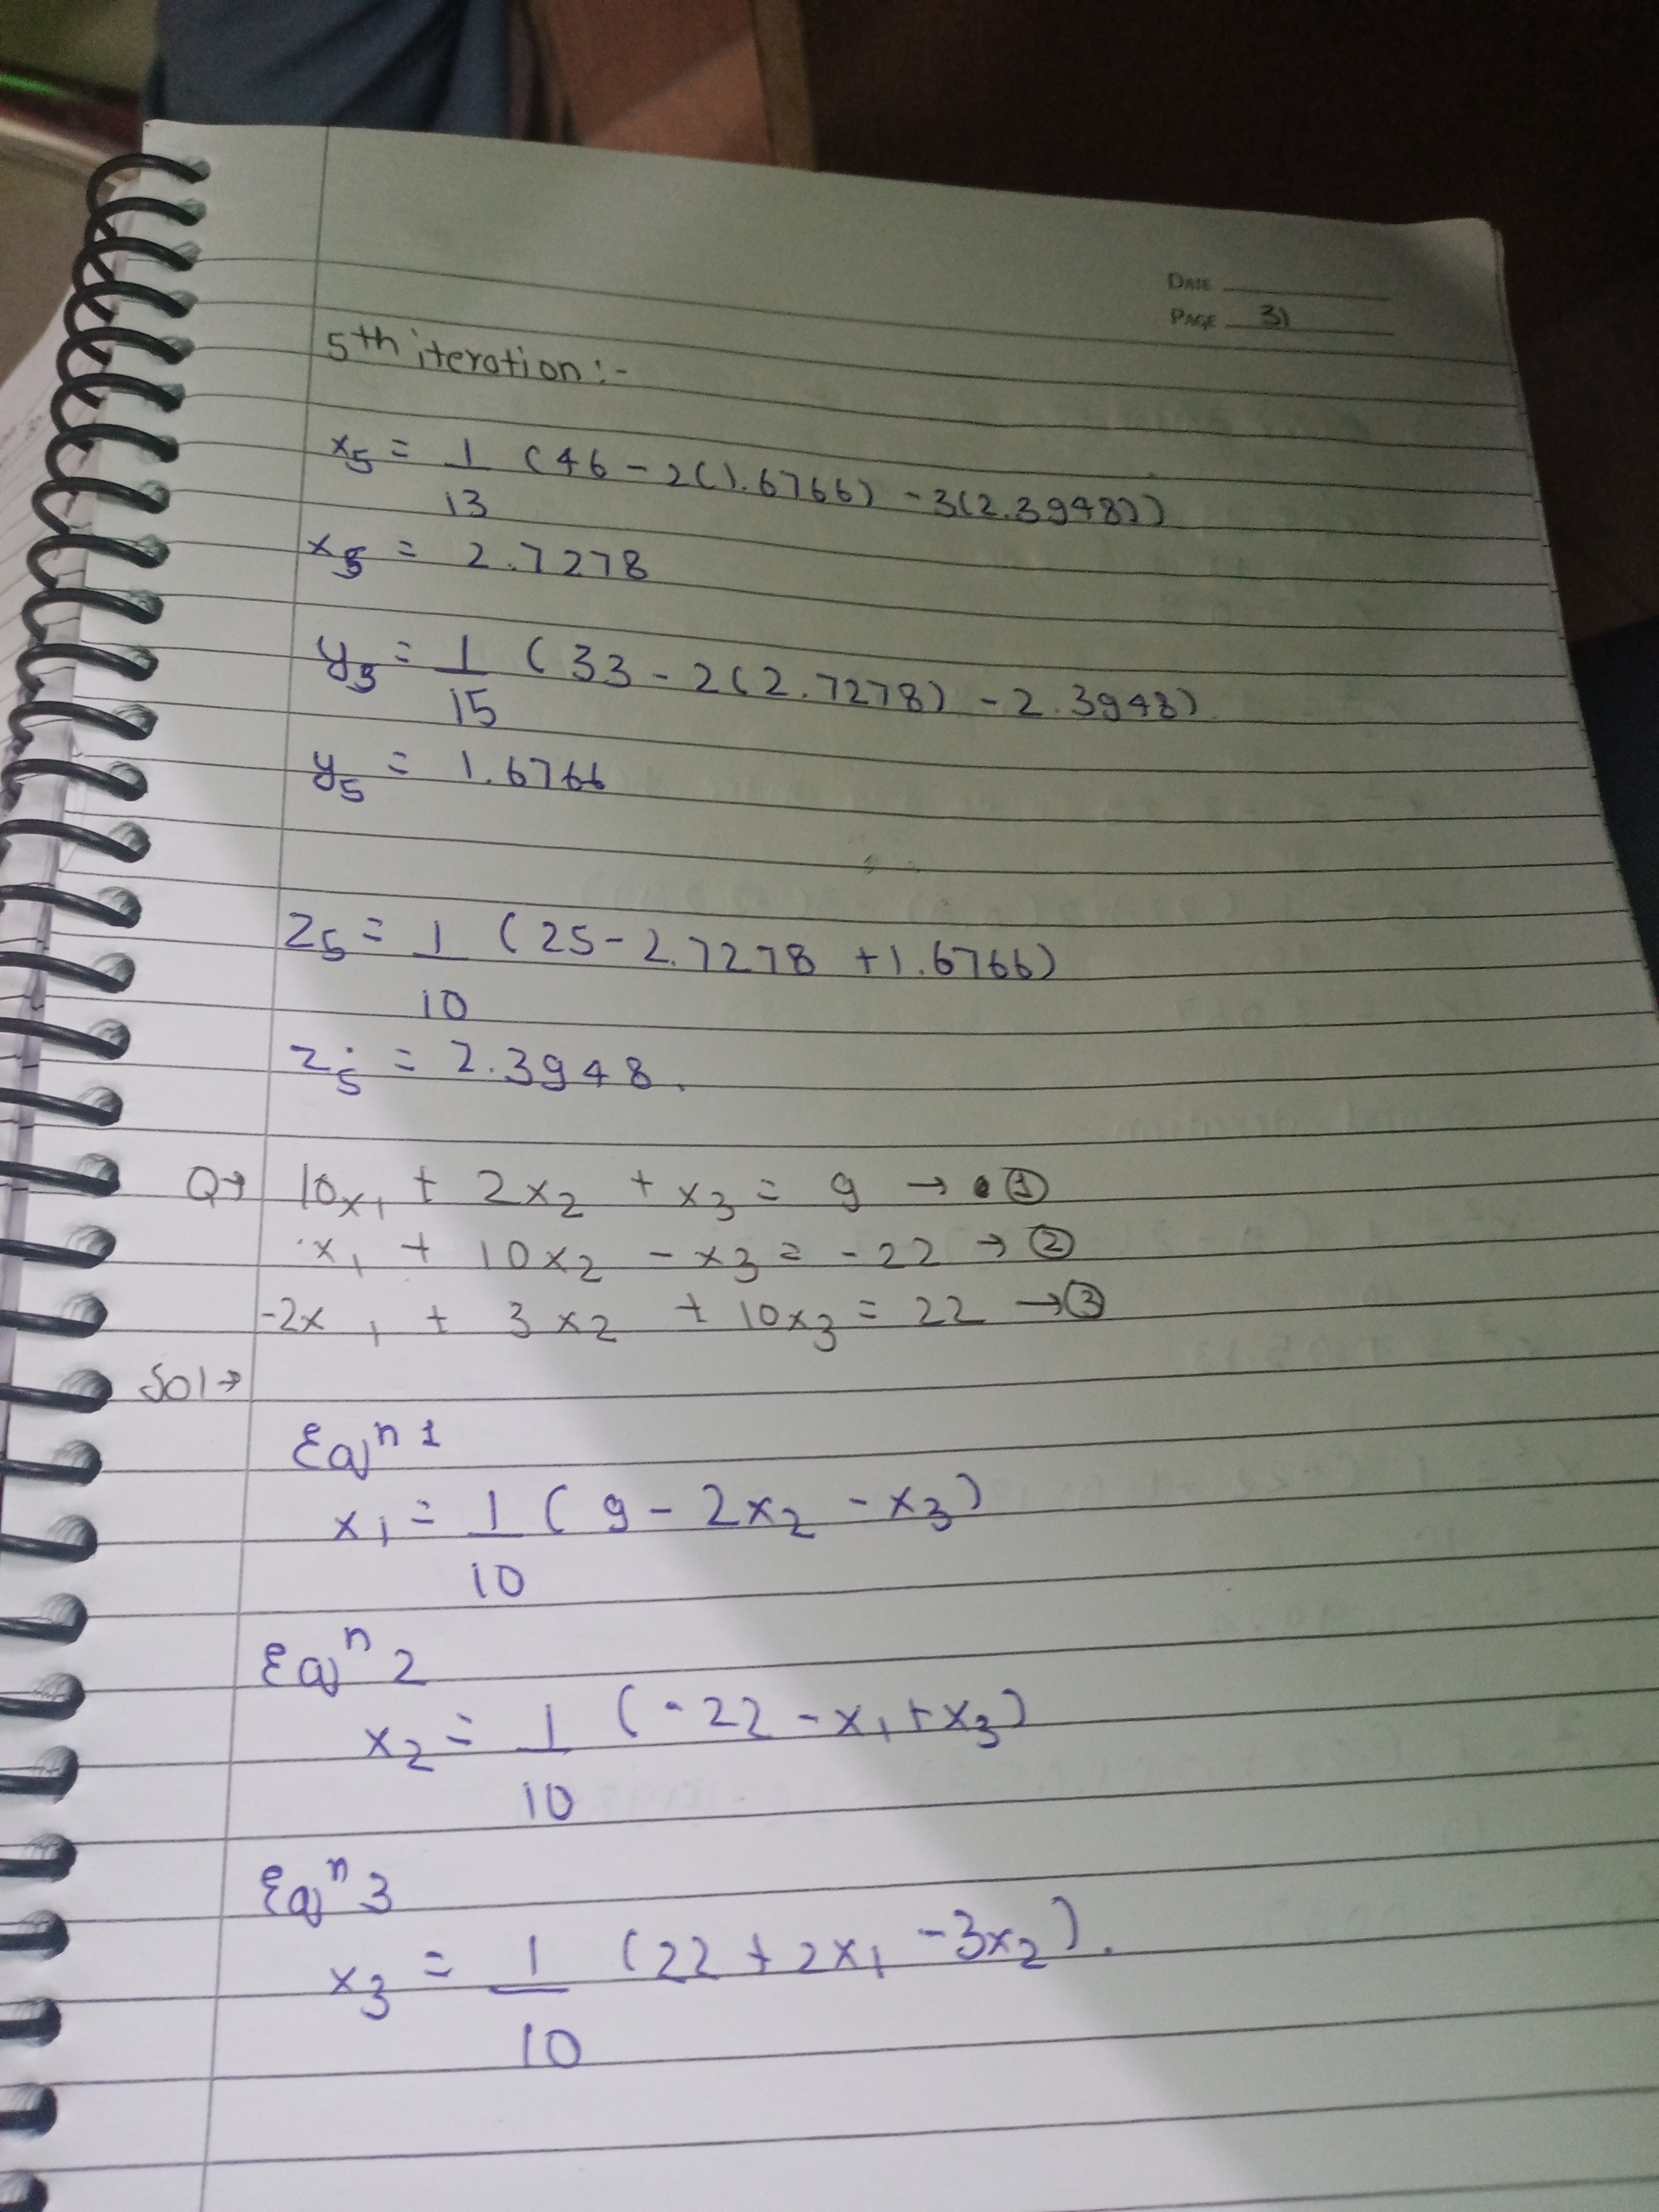 DATE
PAGE 31
5th iteration :-
x5 = 1/13 (46 - 2(1.6766) - 3(2.3948))
x5 = 2.7278
y5 = 1/15 (33 - 2(2.7278) - 2.3948)
y5 = 1.6766
z5 = 1/10 (25 - 2.7278 + 1.6766)
z5 = 2.3948.
Q→ 10x1 + 2x2 + x3 = 9 → ①
x1 + 10x2 - x3 = -22 → ②
-2x1 + 3x2 + 10x3 = 22 → ③
Sol→
Eqn 1
x1 = 1/10 (9 - 2x2 - x3)
Eqn 2
x2 = 1/10 (-22 - x1 + x3)
Eqn 3
x3 = 1/10 (22 + 2x1 - 3x2).